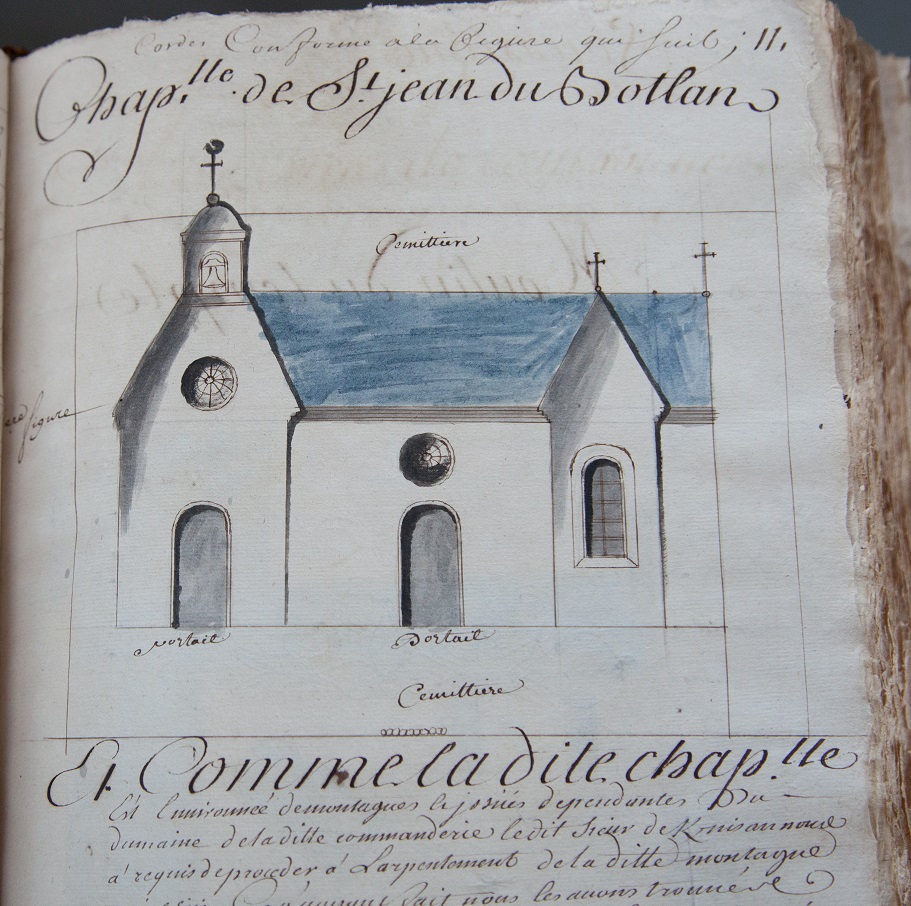 Cordes Conforme a la figure qui suit; 11.
Chap.lle de St jean du Botlan
Cemittiere
figure
portail
Portail
Cemittiere
Et Comme la dite chap.lle
Est Environneé de montagues dependantes Du
dumaine de la ditte commanderie le dit sieur de
a requis de proceder a Larpentement de la ditte montagne
fait nous les avons trouvée